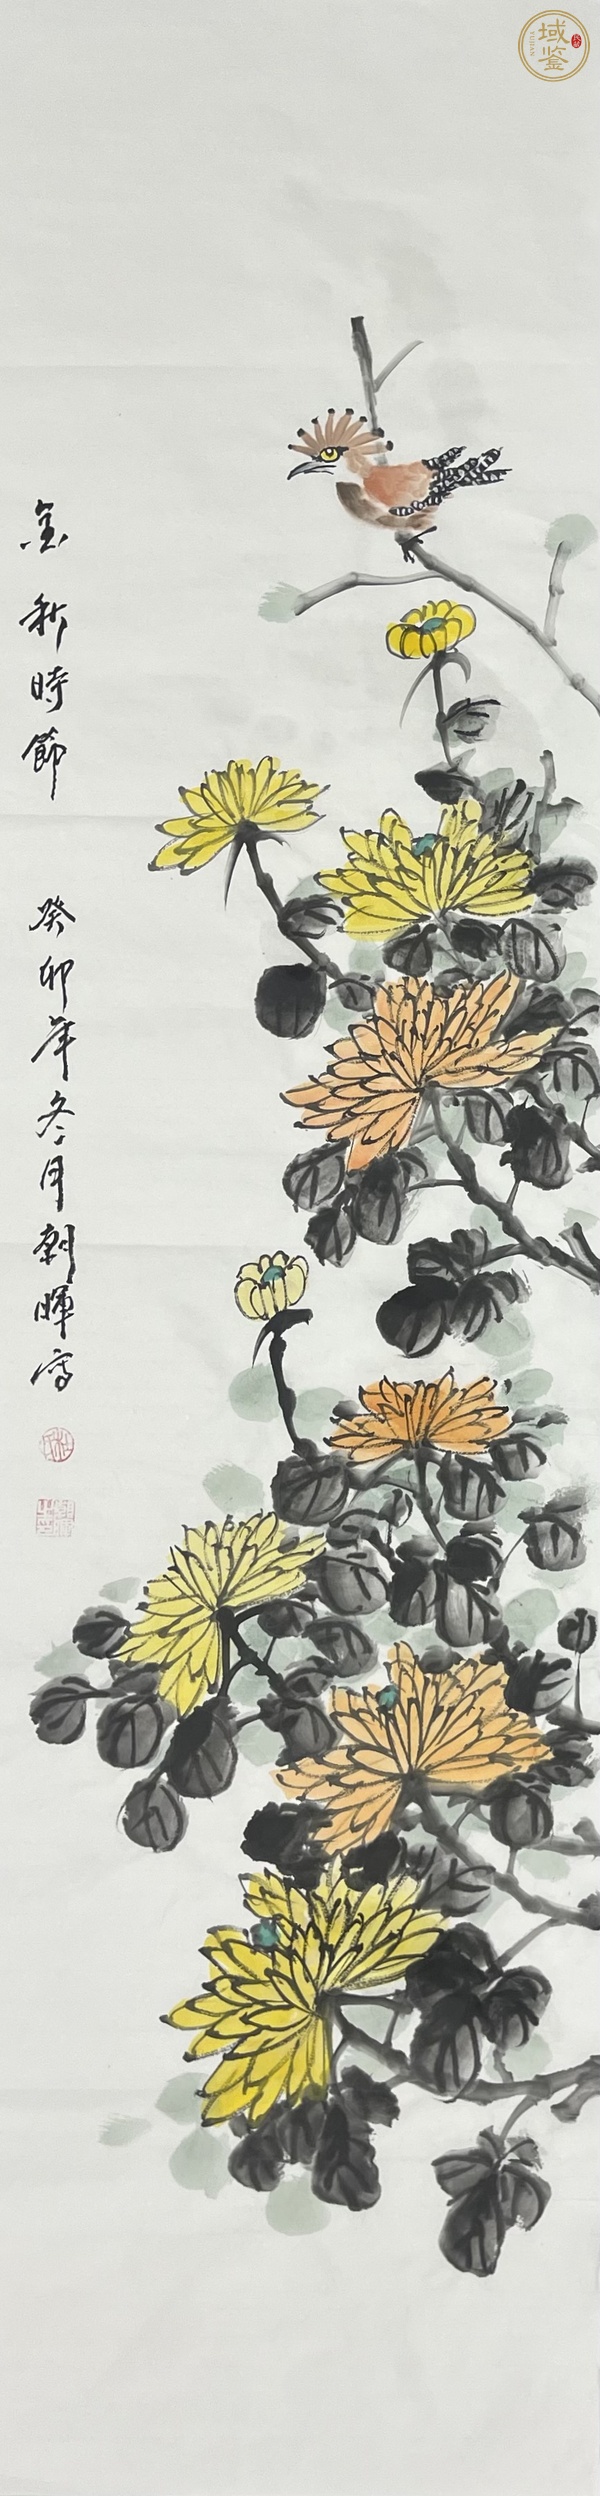 域鉴
YUJIAN
金秋時節
癸卯年冬月朝暉寫